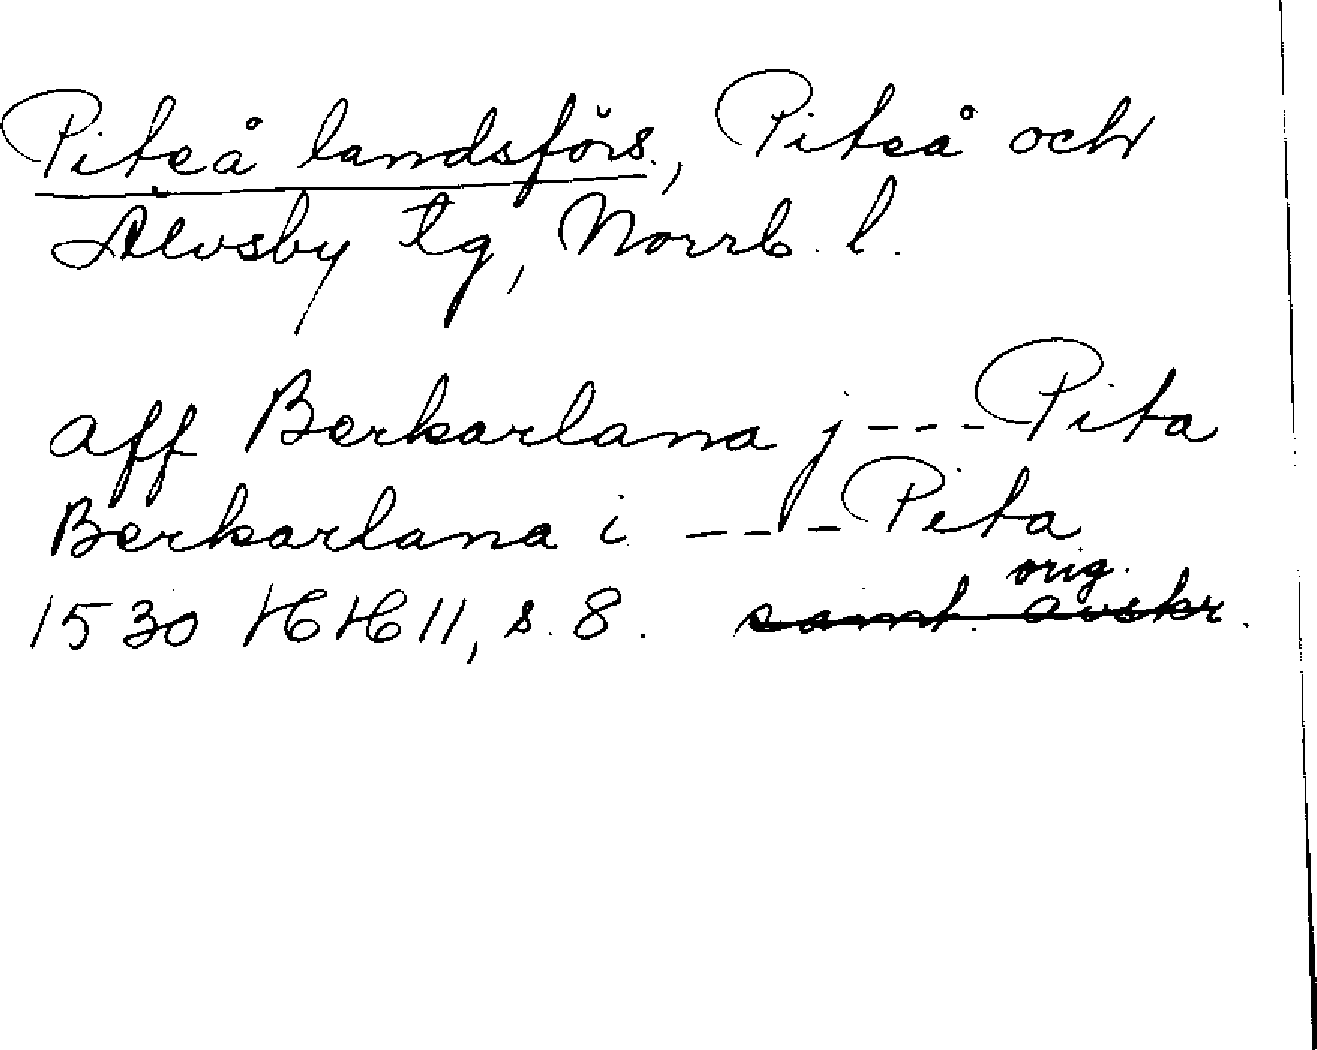 Piteå landsförs., Piteå och
Älvsby tg, Norrb. l.
aff Berkarlana j --- Pita
Berkarlana i --- Pita
orig.
1530 HH 11, s. 8. samt. avskr.